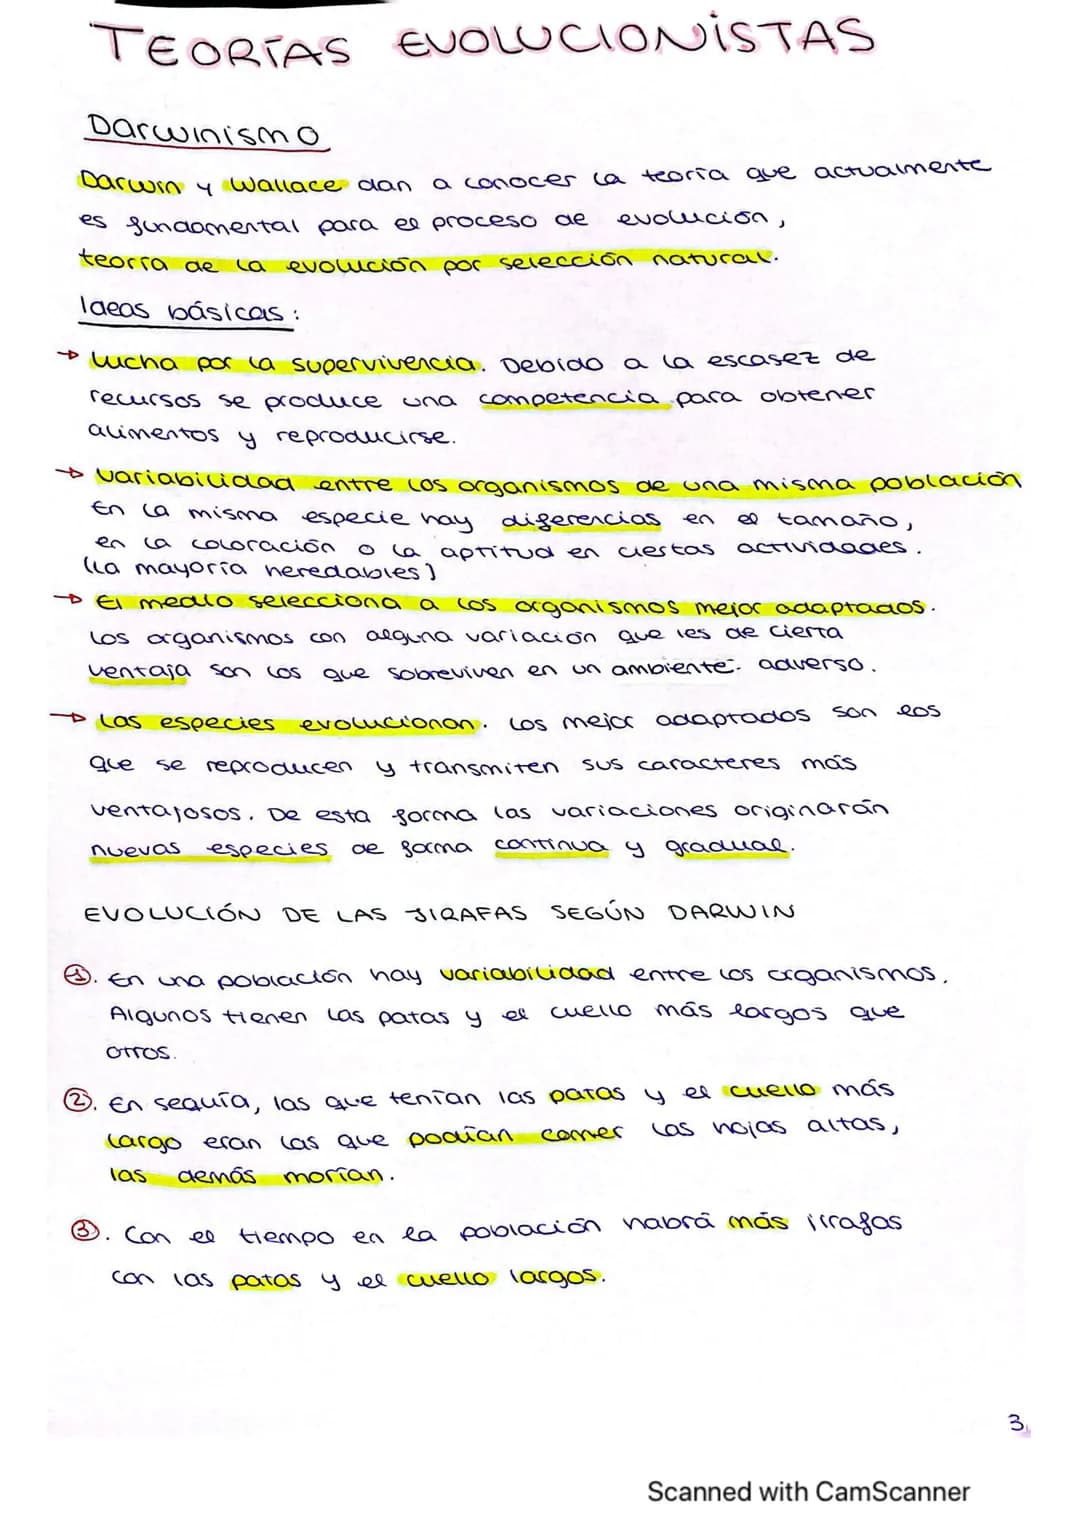 TEORÍAS EVOLUCIONISTAS
Darwinismo
Darwin y Wallace dan a conocer la teoría que actualmente
es fundamental para el proceso de evolución,
teoría de la evolución por selección natural.
Ideas básicas:
→ Lucha por la supervivencia. Debido a la escasez de
recursos se produce una competencia para obtener
alimentos y reproducirse.
→ Variabilidad entre los organismos de una misma población
En la misma especie hay diferencias en el tamaño,
en la coloración o la aptitud en ciertas actividades.
(la mayoría heredables)
→ El medio selecciona a los organismos mejor adaptados.
Los organismos con alguna variación que les de cierta
ventaja son los que sobreviven en un ambiente adverso.
→ Las especies evolucionan. Los mejor adaptados son los
que se reproducen y transmiten sus caracteres más
ventajosos. De esta forma las variaciones originarán
nuevas especies de forma continua y gradual.
EVOLUCIÓN DE LAS JIRAFAS SEGÚN DARWIN
①. En una población hay variabilidad entre los organismos.
Algunos tienen las patas y el cuello más largos que
otros.
②. En sequía, las que tenían las patas y el cuello más
largo eran las que podían comer las hojas altas,
las demás morían.
③. Con el tiempo en la población habrá más jirafas
con las patas y el cuello largos.
3
Scanned with CamScanner